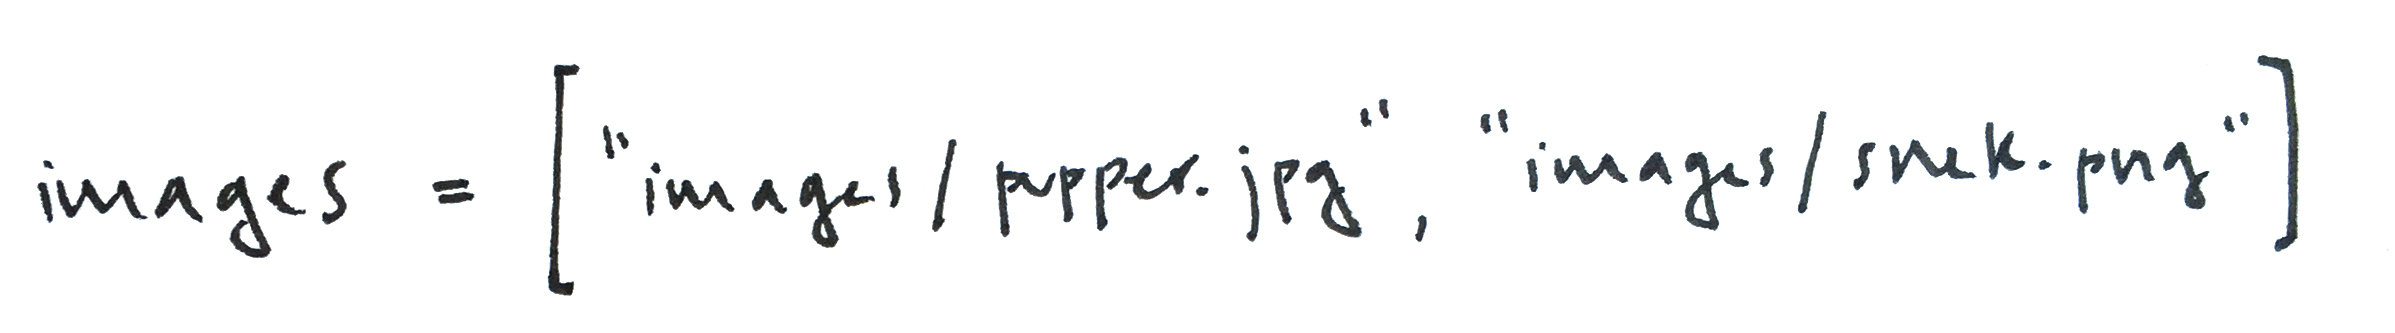 images = ["images/pupper.jpg", "images/snek.png"]